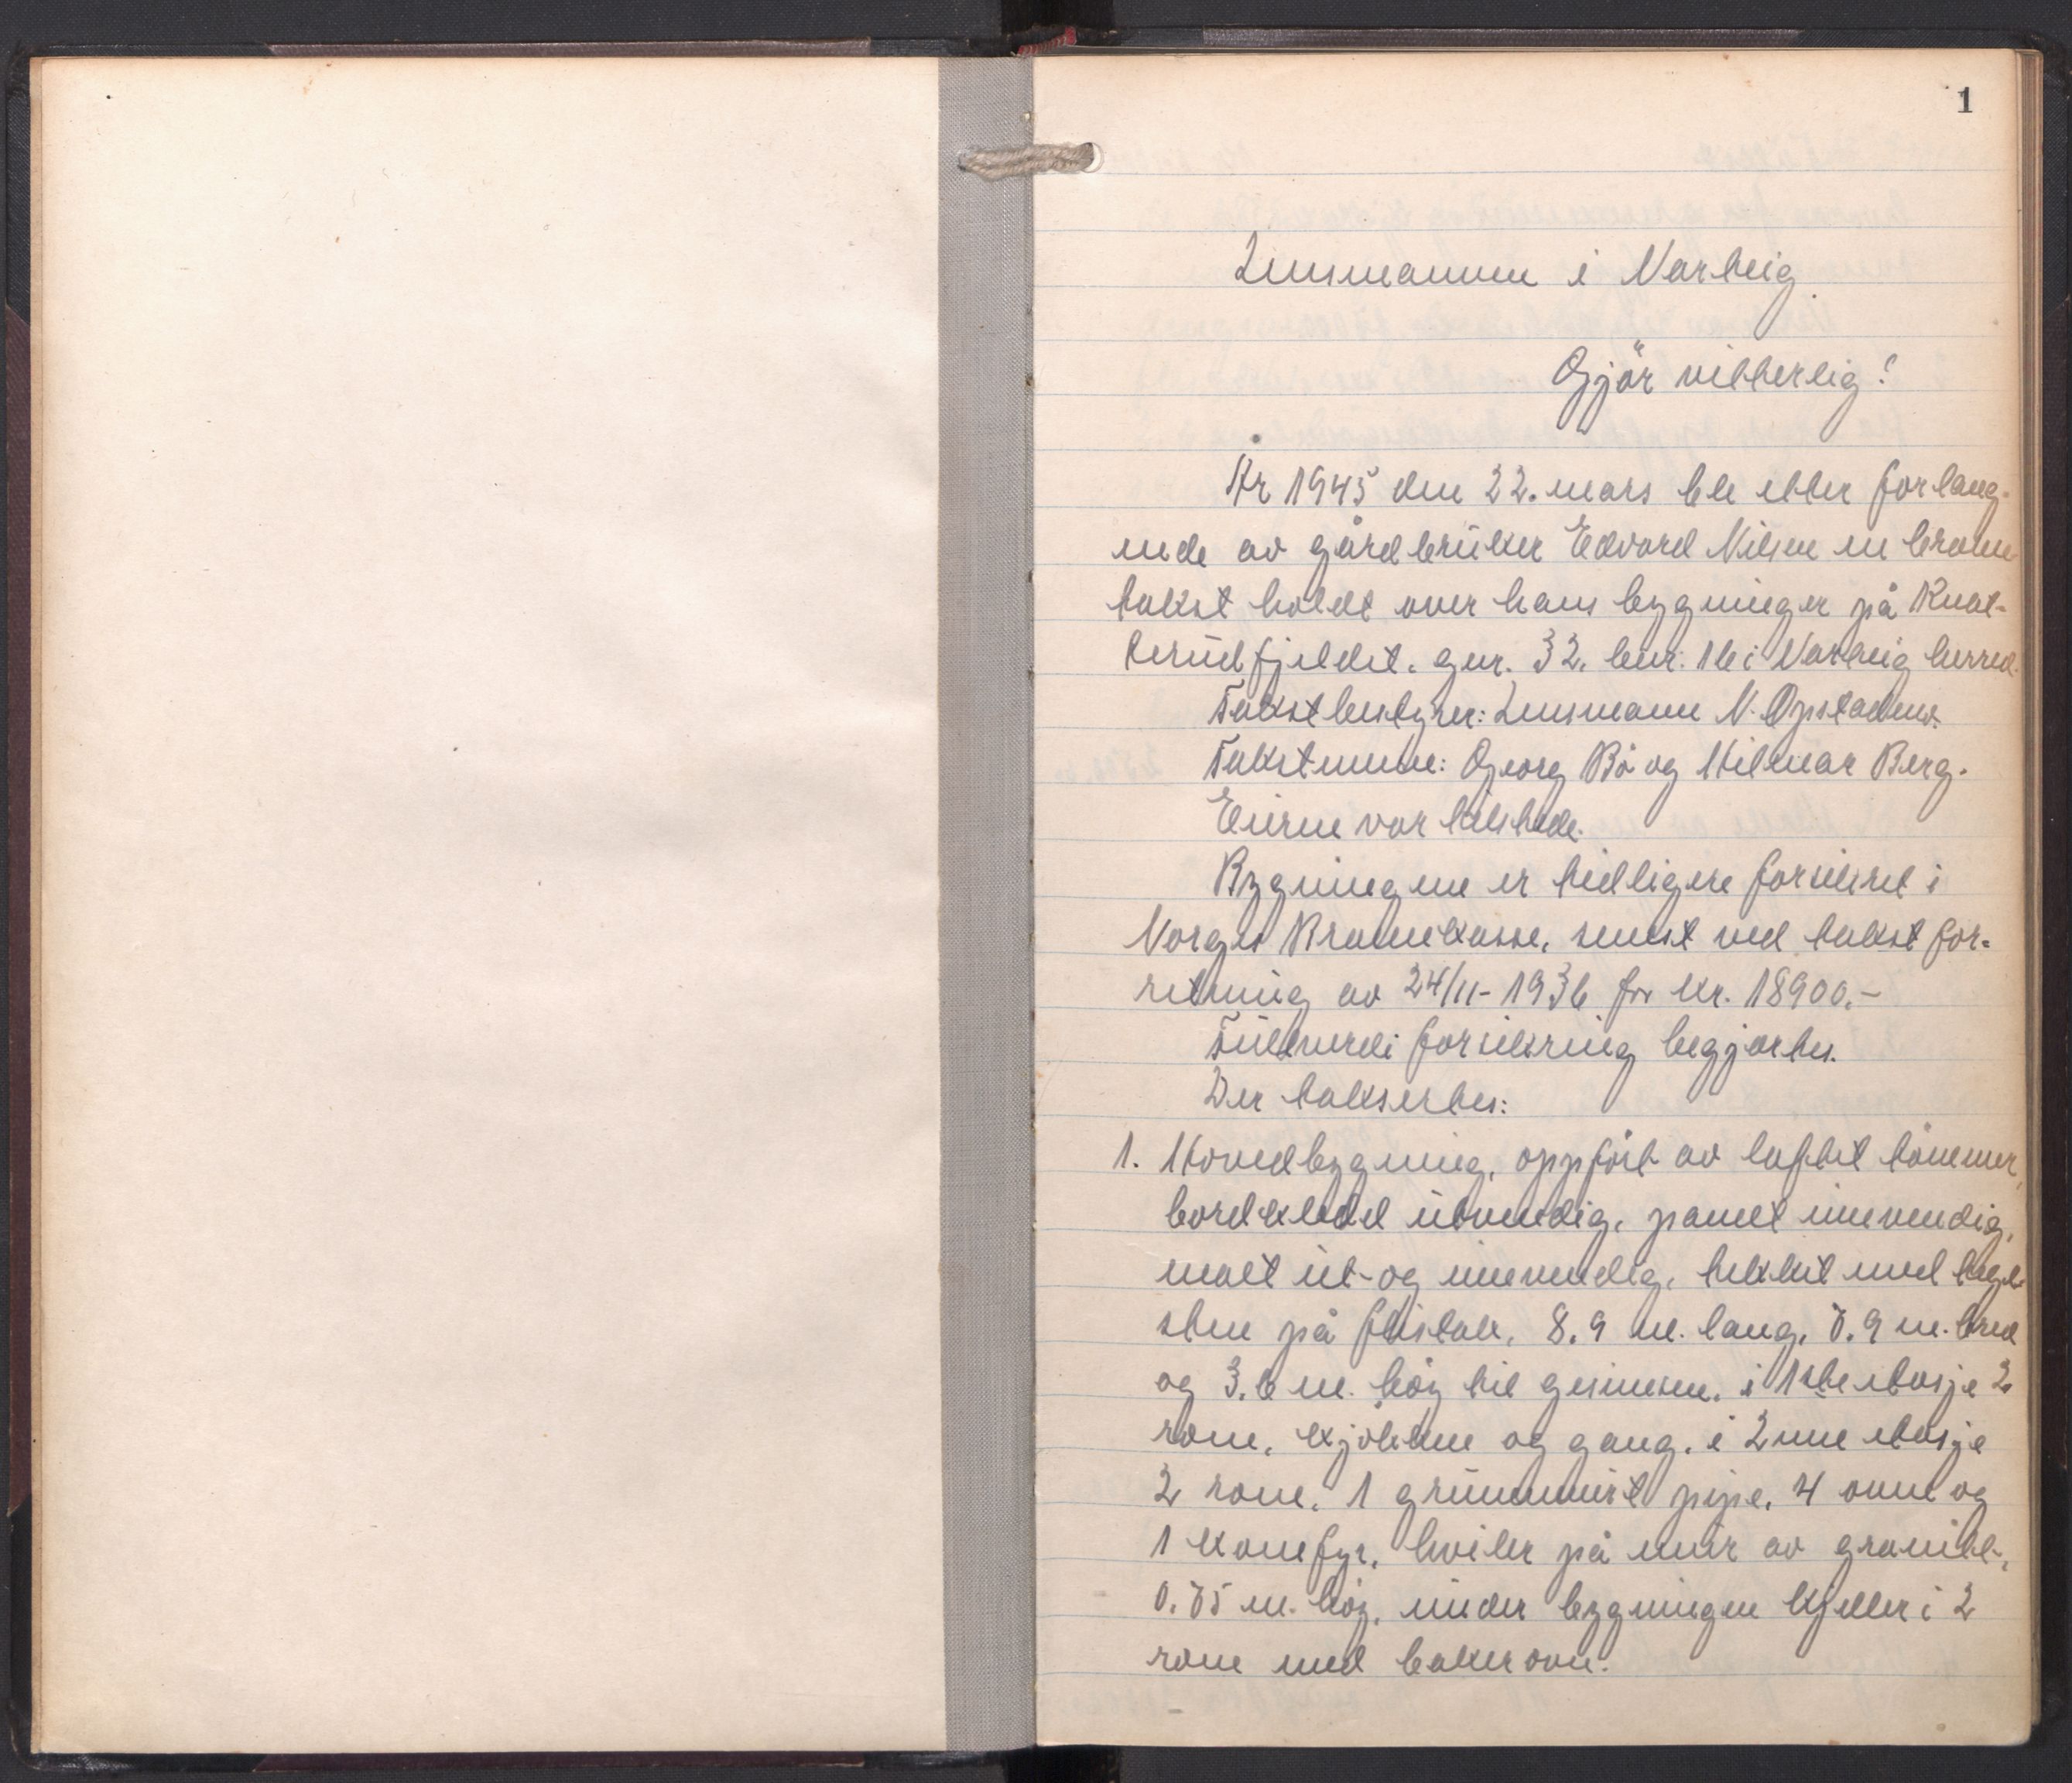 1
Lensmannen i Varteig
Gjör vitterlig:
År 1945 den 22. mars ble etter forlang-
ende av gårdbruker Edvard Nilsen en brann-
takst holdt over hans bygninger på Knat-
terudfjeldet. gnr. 32. bnr. 16 i Varteig herred.
Takstbestyrer: Lensmann N. Opstad
Takstmenn: Georg Bö og Hilmar Berg.
Eieren var tilstede.
Bygningene er tidligere forsikret i
Norges Brannkasse, senest ved takst for-
retning av 24/11-1936 for kr. 18900.-
Fullverdi forsikring begjærtes.
Der taksertes:
1. Hovedbygning, oppfört av laftet tömmer,
bordkledd utvendig, panelt innvendig,
malt ut- og innvendig, tekket med tegl-
sten på flistak, 8.9 m. lang, 7.9 m. bred
og 3.6 m. höy til gesimsen, i 1ste etasje 2
rom, kjökken og gang, i 2nne etasje
2 rom, 1 grunnmurt pipe, 4 ovne og
1 komfyr, hviler på mur av granitt,
0.75 m. höy, under bygningen kjeller i 2
rom med bakerovn.